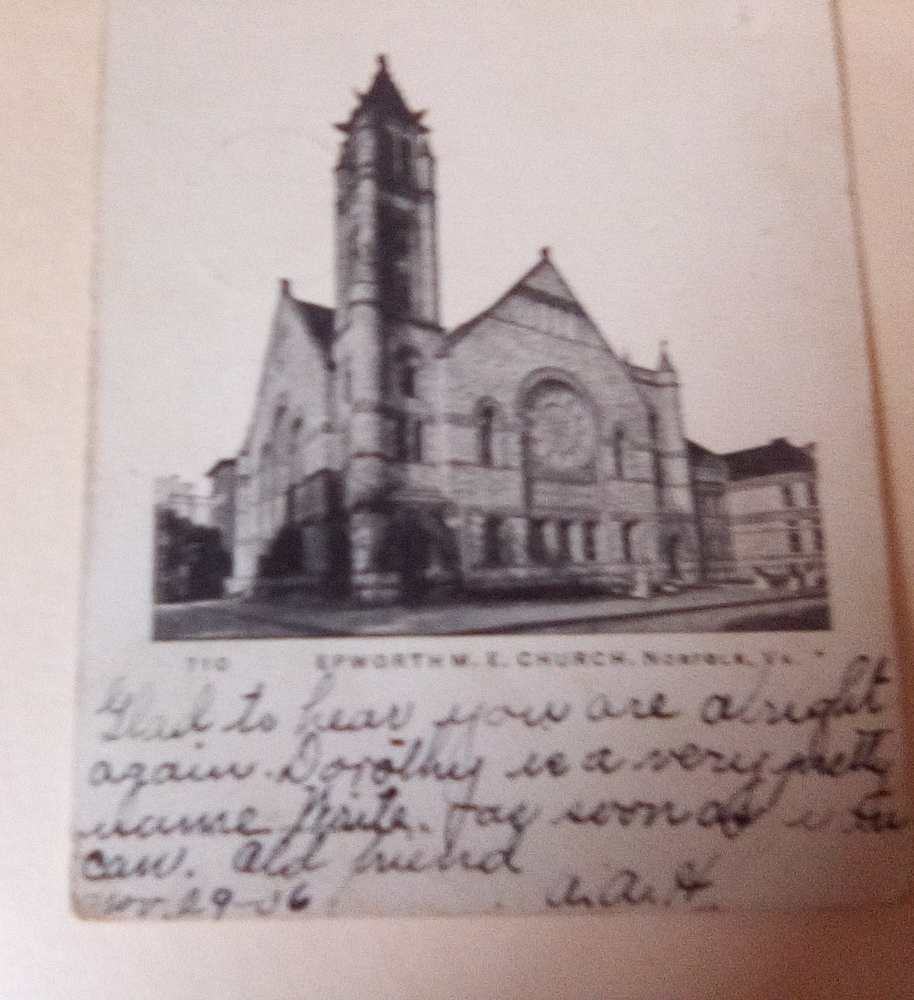 710 EPWORTH M. E. CHURCH. NORFOLK, VA.
Glad to hear you are alright
again. Dorothy is a very pretty
name Write. soon as
can. Old friend
Nov. 29-06
A. A. H.